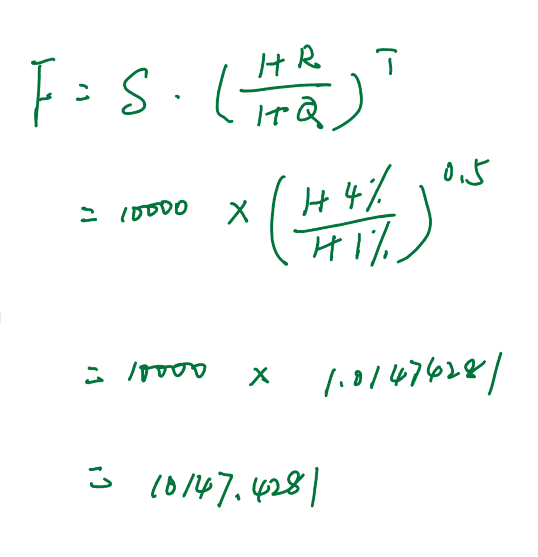 F = S · ( (1+R) / (1+Q) )^T
= 10000 × ( (1+4%) / (1+1%) )^0.5
= 10000 × 1.01474281
= 10147.4281